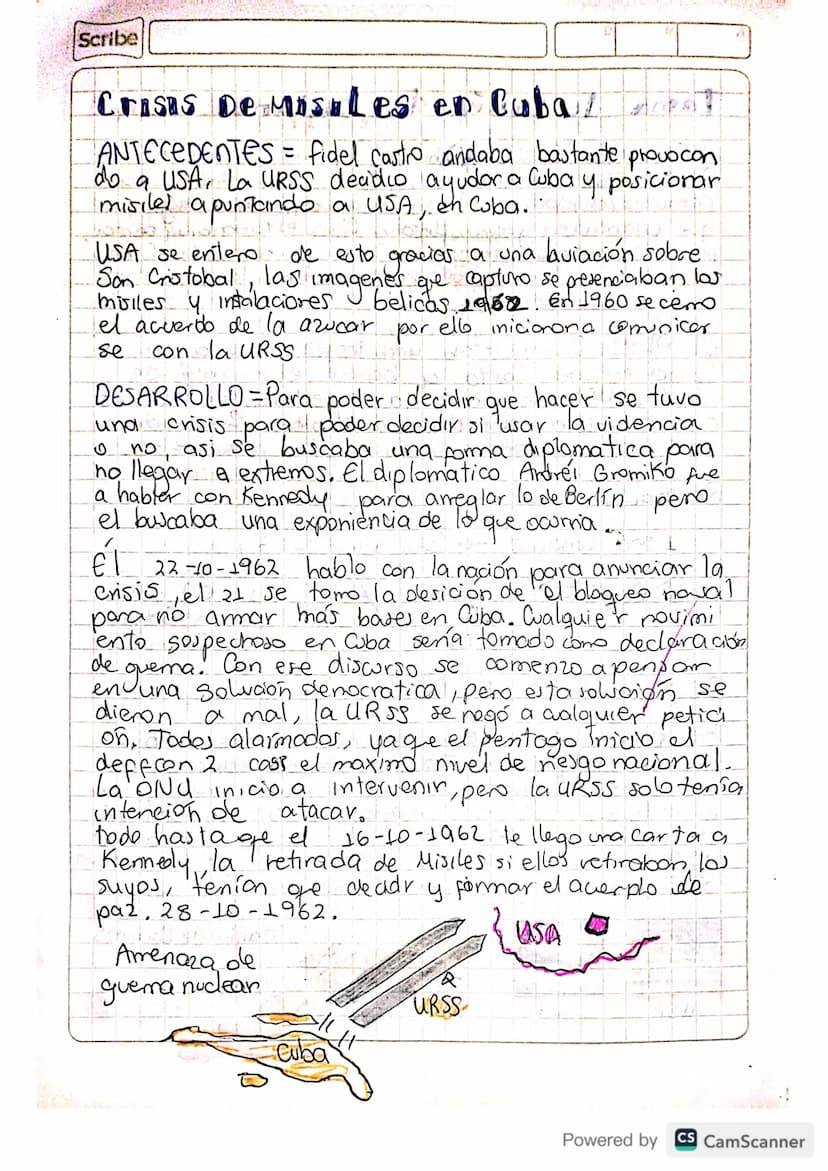 Scribe
Crisis De Misiles en Cuba
ANTECEDENTES = fidel castro andaba bastante provocon
do a USA, La URSS decidio ayudar a Cuba y posicionar
misiles apuntando a USA, en Cuba.
USA se entero de esto gracias a una aviación sobre
San Cristobal, las imagenes que capturo se presenciaban las
misiles y instalaciones belicas 1962. En 1960 se cerro
el acuerdo de la azucar por ello iniciaron a comunicar
se con la URSS
DESARROLLO = Para poder decidir que hacer se tuvo
una crisis para poder decidir si usar la videncia
o no, asi se buscaba una forma diplomatica para
no llegar a extremos. El diplomatico Andréi Gromiko fue
a hablar con Kennedy para arreglar lo de Berlín pero
el buscaba una exponiencia de lo que ocurria.
Él 22-10-1962 hablo con la nación para anunciar la
crisis, el 21 se tomo la desición de el bloqueo naval
para no armar más bases en Cuba. Cualquier movimi
ento sospechoso en Cuba sería tomado como declaración
de guerra. Con ese discurso se comenzo a pensar
en una solución democratica, pero esta solución se
dieron a mal, la URSS se nogó a cualquier petici
on. Todos alarmados, ya que el pentago inicio el
deffcon 2 casi el maximo nivel de riesgo nacional.
La ONU inicio a intervenir, pero la URSS solo tenía
intencion de atacar.
todo hasta qe el 16-10-1962 le llego una carta a
Kennedy, la retirada de Misiles si ellos retiraban los
suyos, tenían que decidr y formar el acuerdo de
paz. 28-10-1962.
Amenaza de
guerra nuclear
USA
URSS
Cuba
Powered by CS CamScanner